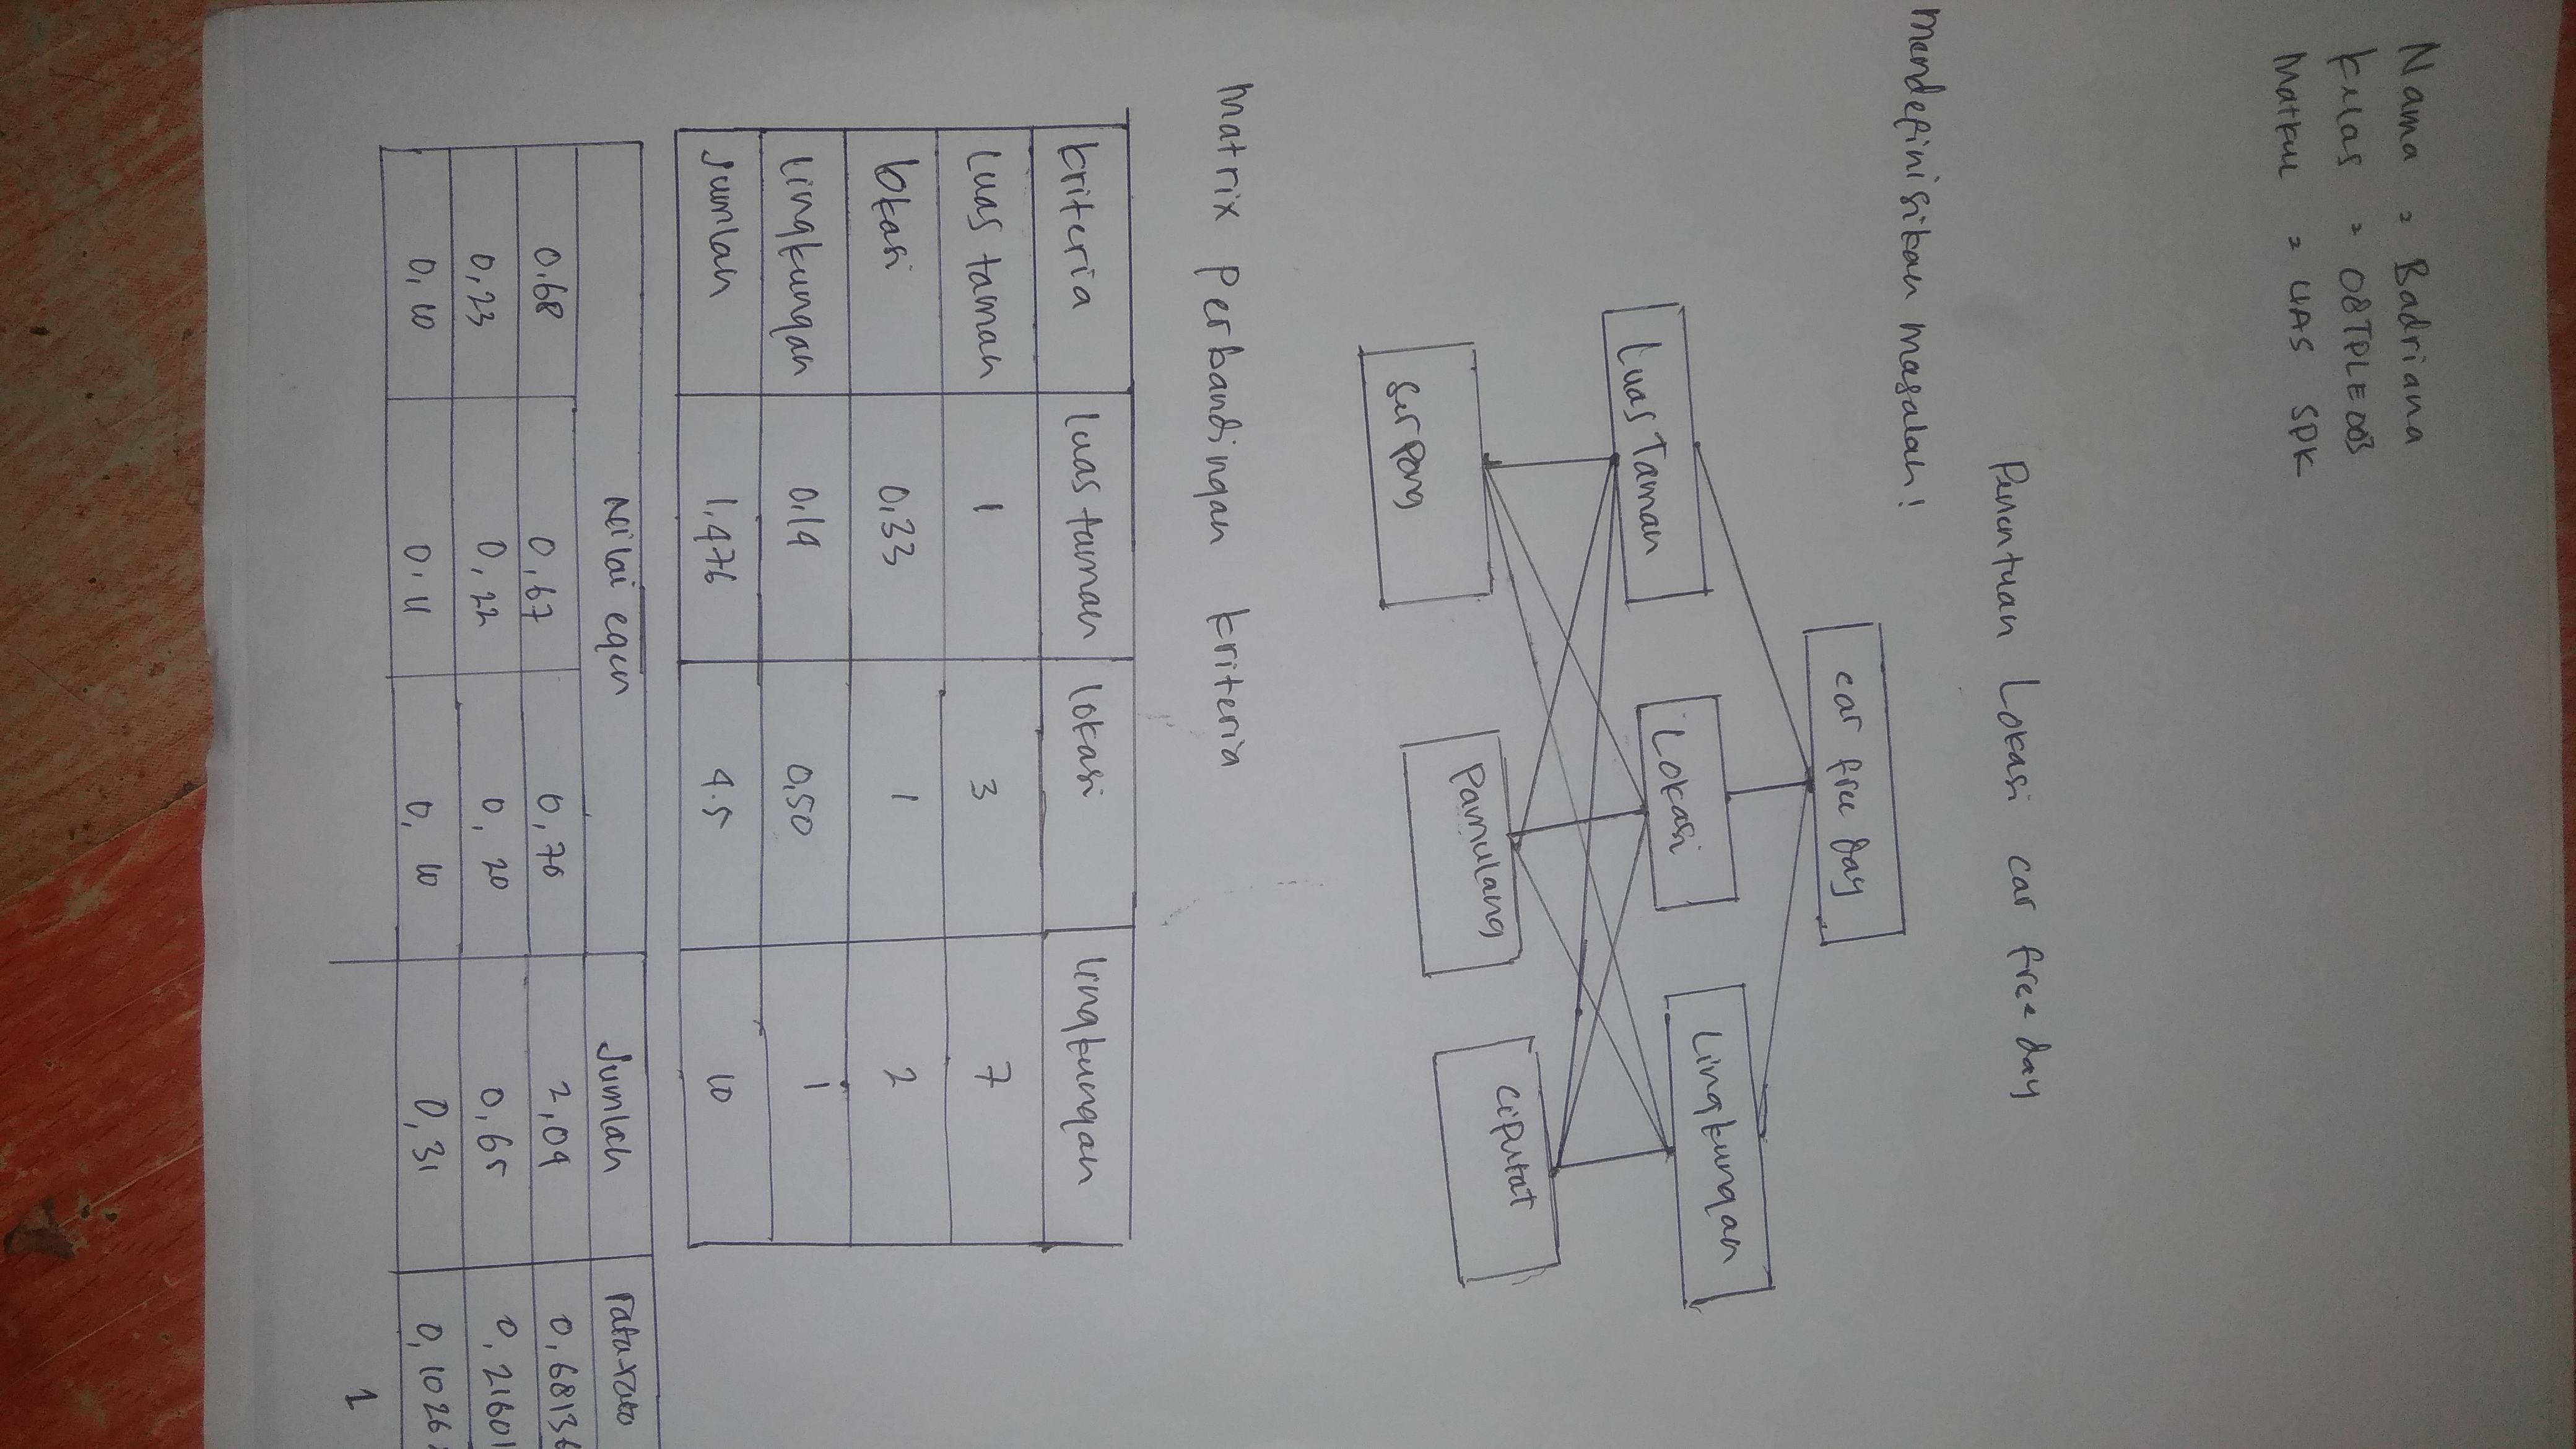 Nama = Badriana
Kelas = 08TPLE003
Matkul = UAS SPK
Penentuan Lokasi car free day
Mendefinisikan masalah!
car free day
Luas Taman Lokasi Lingkungan
Serpong Pamulang Ciputat
Matrix Perbandingan kriteria
kriteria luas taman lokasi lingkungan
Luas taman 1 3 7
lokasi 0,33 1 2
Lingkungan 0,14 0,50 1
Jumlah 1,476 4.5 10
Nilai eigen Jumlah rata-rata
0,68 0,67 0,70 2,04 0,68136
0,23 0,22 0,20 0,65 0,21601
0,10 0,11 0,10 0,31 0,1026
1